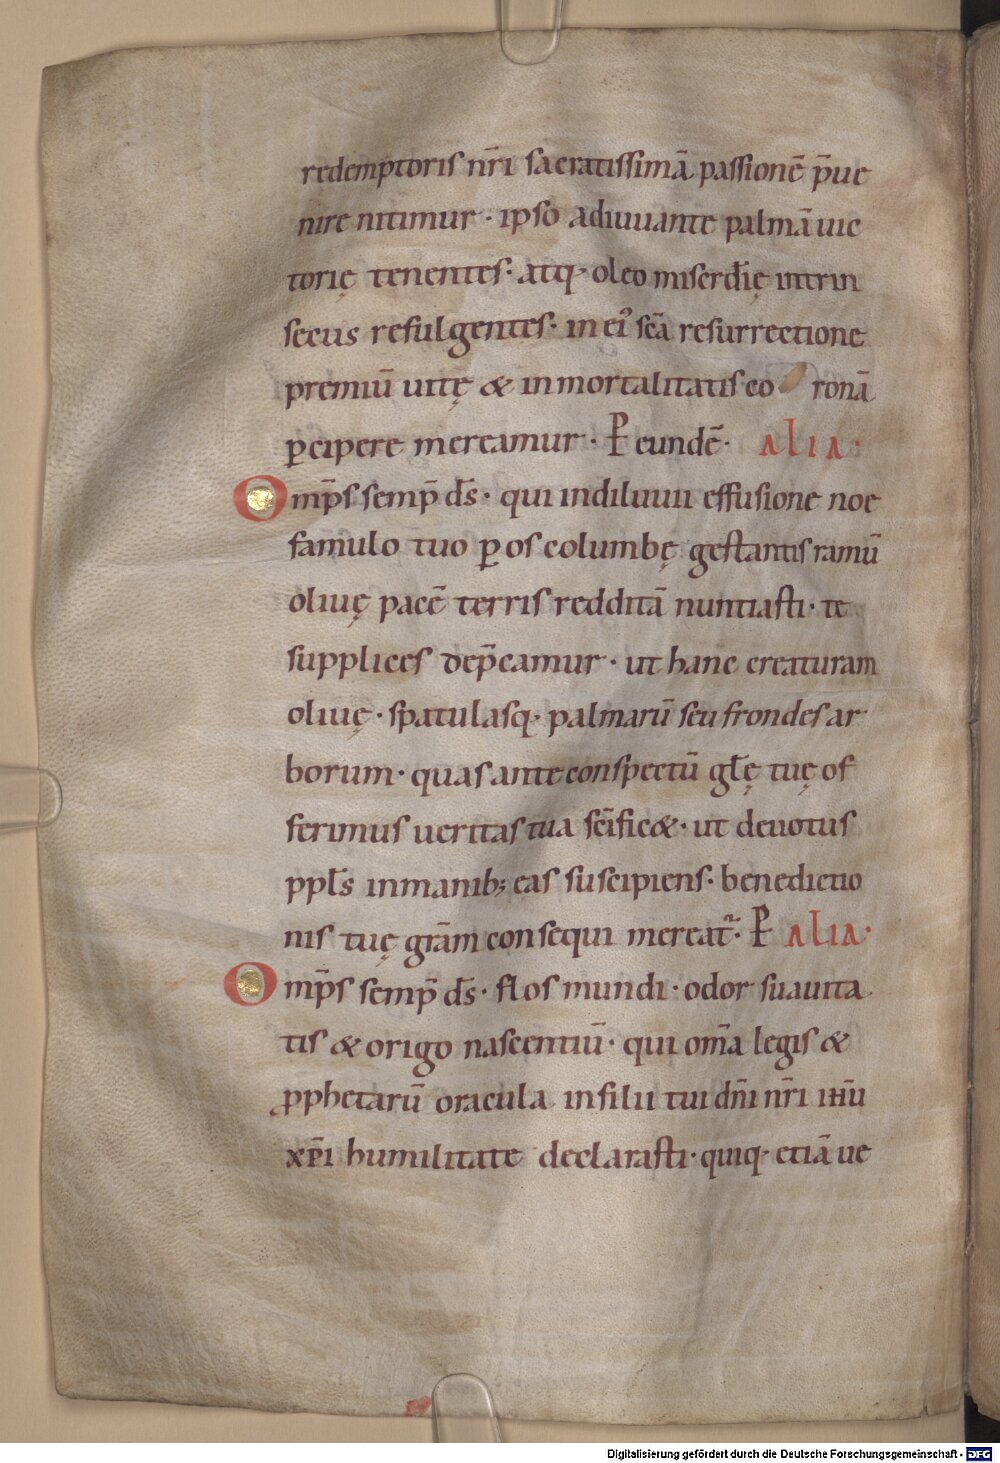 redemptoris nr̄i sacratissimā passionē p̄ue
nire nitimur · ipso adiuuante palmā uic
torię tenentes · atq· oleo miserd̄ię intrin
secus refulgentes · in ei᾽ sc̄a resurrectione
premiū uitę & inmortalitatis co ronā
ꝑcipere mereamur · P eundē · ALIA ·
Omp̄s semp̄ ds̄ · qui indiluuii effusione noe
famulo tuo ꝑ os columbę gestantis ramū
oliuę pacē terris redditā nuntiasti · te
supplices dep̄camur · ut hanc creaturam
oliuę · spatulasq· palmarū seu frondes ar
borum · quas ante conspectū gl̄ę tuę of
ferimus ueritas tua sc̄ific& · ut deuotus
ppl̄s inmanib; eas suscipiens · benedictio
nis tuę grām consequi mereat᷑ · P ALIA ·
Omp̄s semp̄ ds̄ · flos mundi · odor suauita
tis & origo nascentiū · qui om̄a legis &
ꝓphetarū oracula in filii tui dn̄i nr̄i ihū
xp̄i humilitate declarasti · quiq· etiā ue
Digitalisierung gefördert durch die Deutsche Forschungsgemeinschaft - DFG